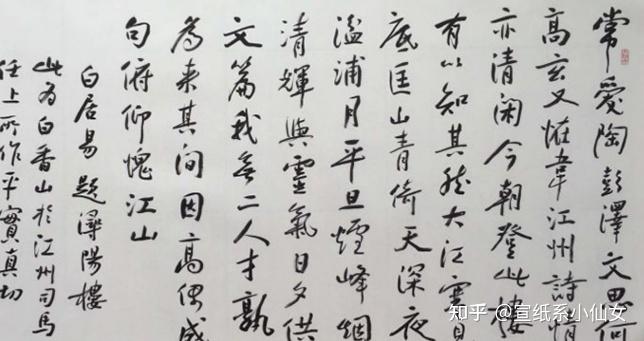 常愛陶彭澤文思何
高玄又恠韋江州詩情
亦清閑今朝登此樓
有以知其然大江寒見
底匡山青倚天深夜
湓浦月平旦爐峰烟
清輝與靈氣日夕供
文篇我無二人才孰
為來其間因高偶成
句俯仰愧江山
白居易 題潯陽樓
此為白香山於江州司馬
任上所作平實真切
知乎 @宣纸系小仙女